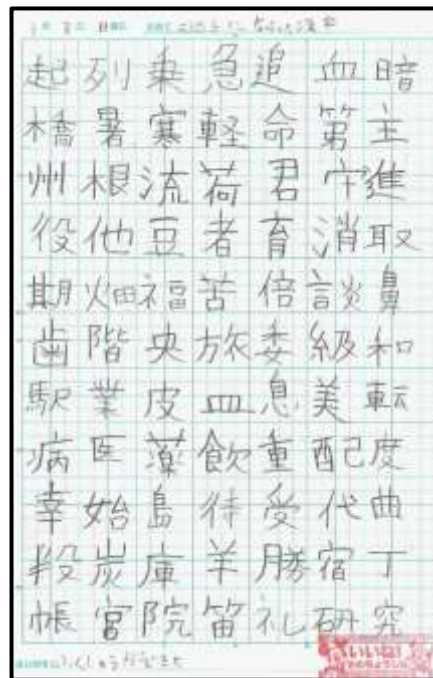 起列乗急追血暗
橋暑寒軽命第主
州根流荷君守進
役他豆者育消取
期畑福苦倍談鼻
歯階央旅委級和
駅業皮皿息美転
病医薬飲重配度
幸始島待受代曲
投炭庫羊勝宿丁
帳宮院笛礼研究
いいね!